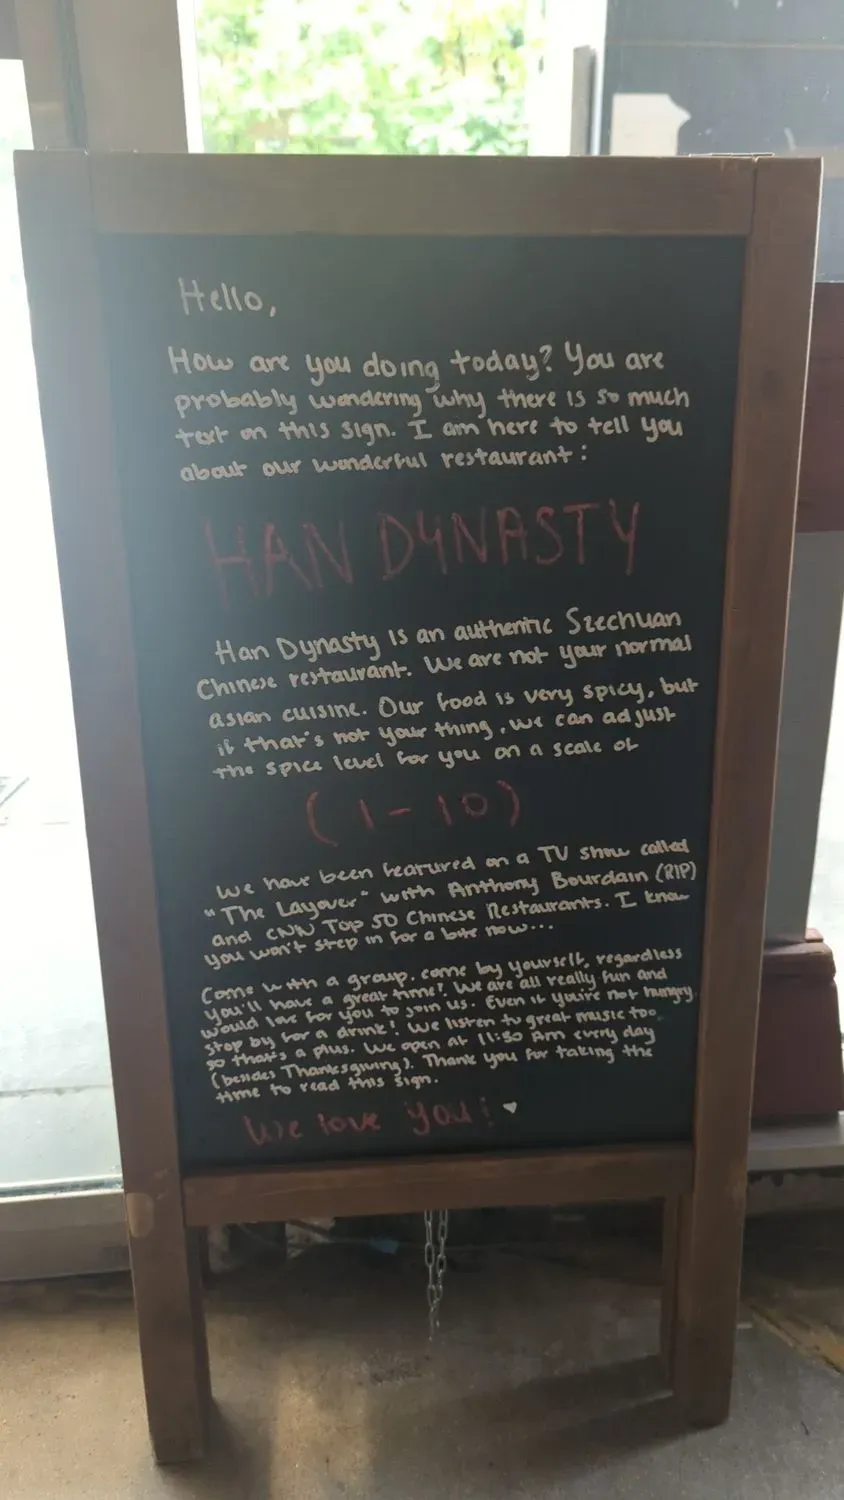 Hello,
How are you doing today? You are
probably wondering why there is so much
text on this sign. I am here to tell you
about our wonderful restaurant:
HAN DYNASTY
Han Dynasty is an authentic Szechuan
Chinese restaurant. We are not your normal
asian cuisine. Our food is very spicy, but
if that's not your thing, we can adjust
the spice level for you on a scale of
(1-10)
We have been featured on a TV show called
"The Layover" with Anthony Bourdain (RIP)
and CNN Top 50 Chinese Restaurants. I know
you won't step in for a bite now...
Come with a group, come by yourself, regardless
you'll have a great time! We are all really fun and
would love for you to join us. Even if you're not hungry,
stop by for a drink! We listen to great music too,
so that's a plus. We open at 11:30 Am every day
(besides Thanksgiving). Thank you for taking the
time to read this sign.
We love you! ♥